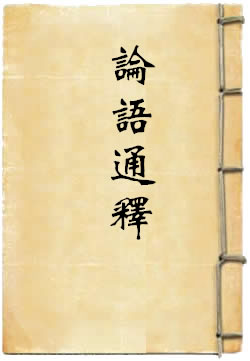 論語通釋